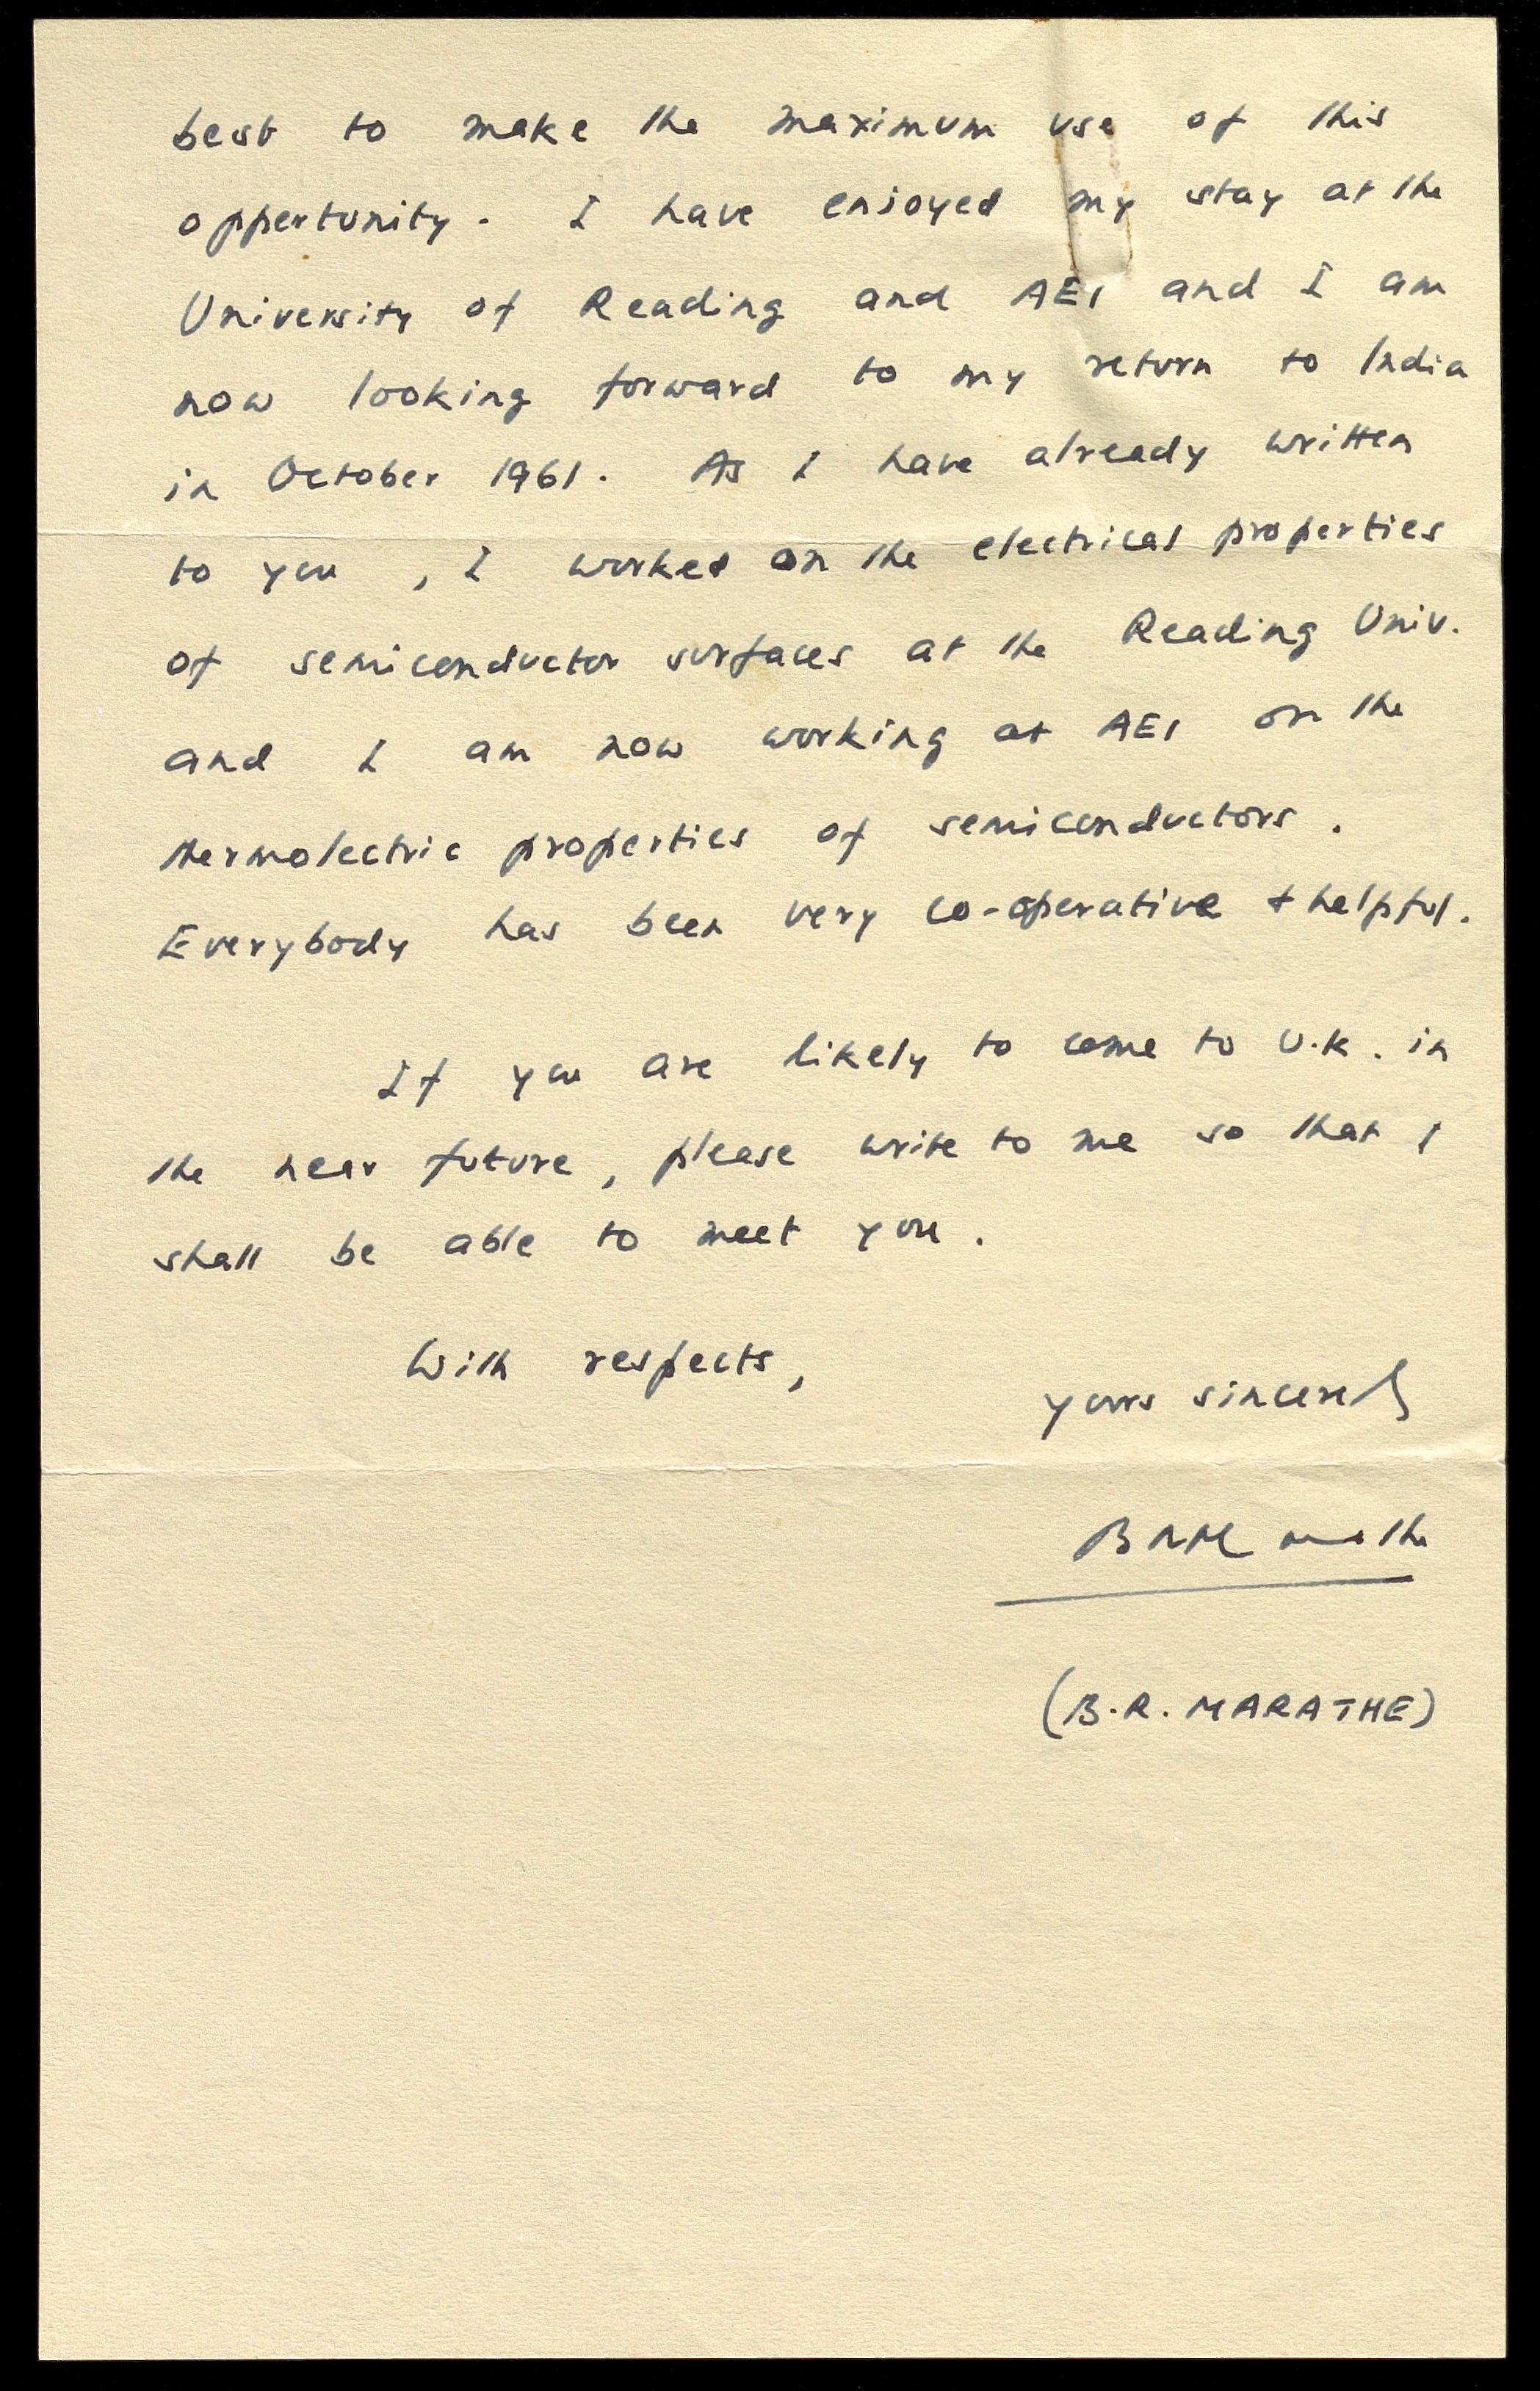 best to make the maximum use of this
oppertunity. I have enjoyed my stay at the
University of Reading and AEI and I am
now looking forward to my return to India
in October 1961. As I have already written
to you, I worked on the electrical properties
of semiconductor surfaces at the Reading Univ.
and I am now working at AEI on the
thermolectric properties of semiconductors.
Everybody has been very co-operative & helpful.
If you are likely to come to U.K. in
the near future, please write to me so that I
shall be able to meet you.
With respects,
yours sincerely
(B.R. MARATHE)